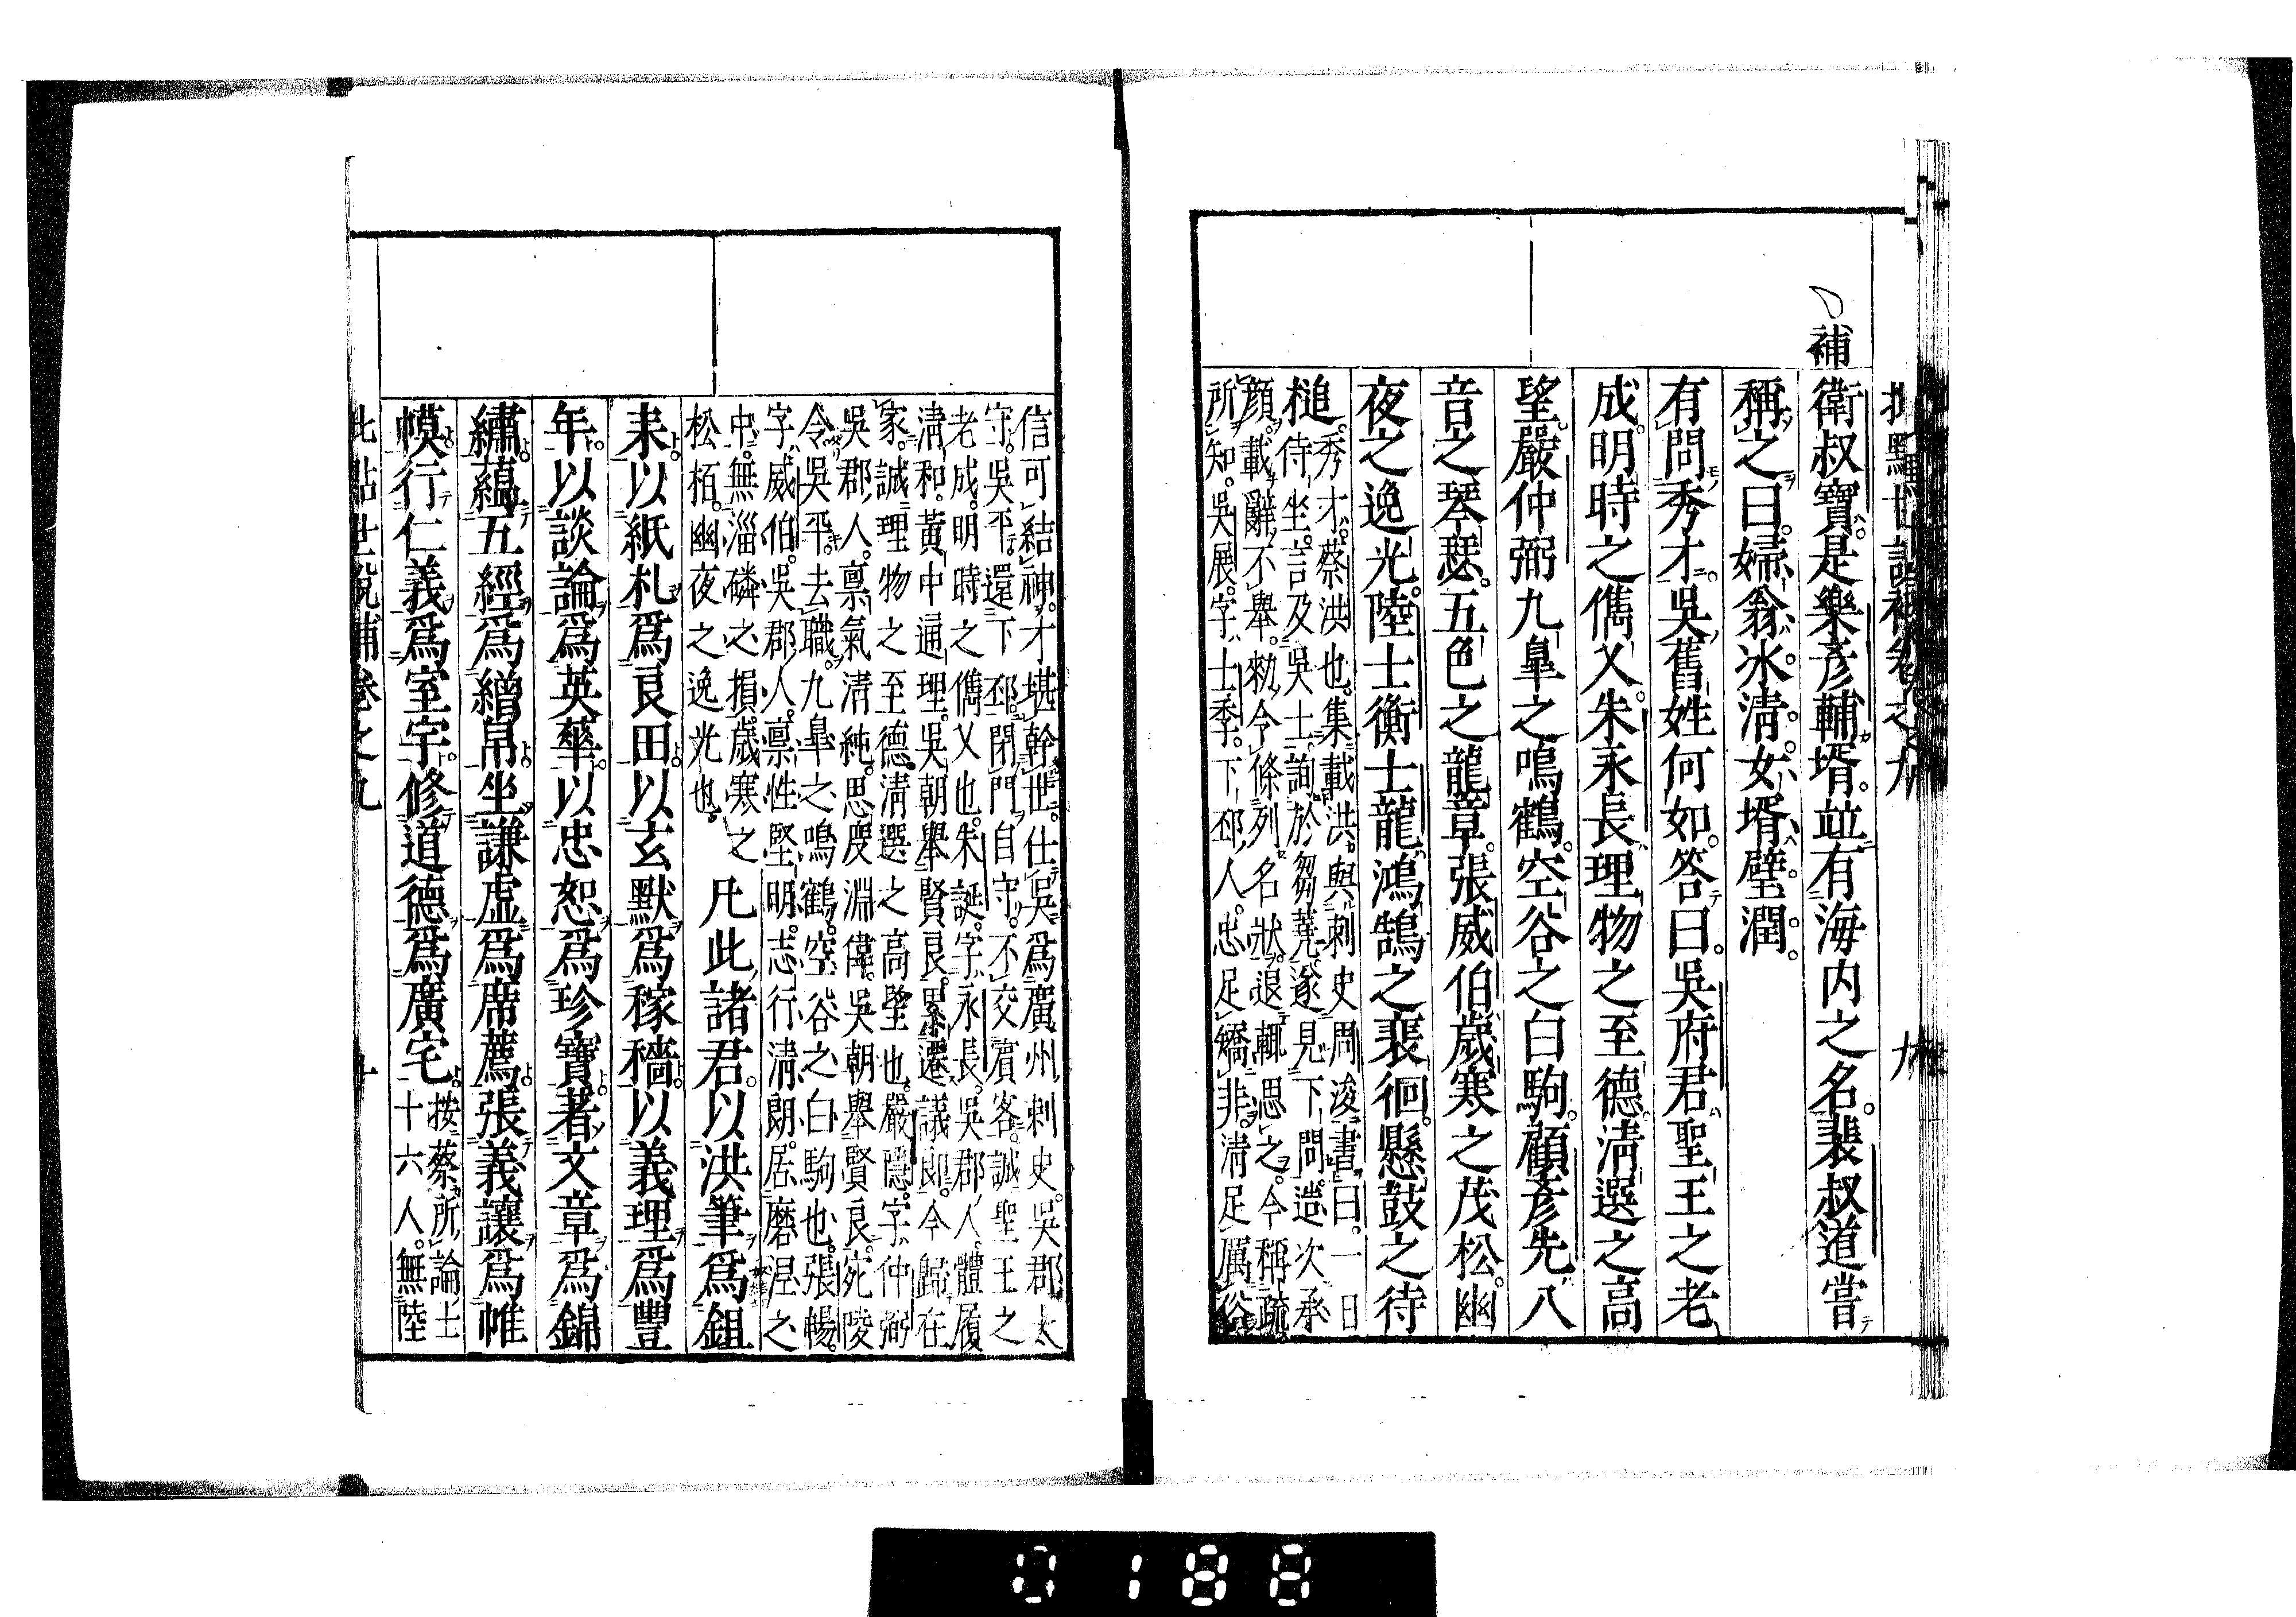 批點世說補卷之九　九
補
衛叔寶是樂彦輔壻。並有海内之名。裴叔道嘗
稱之曰。婦翁氷清。女壻璧潤。
有問秀才。吳舊姓何如。答曰。吳府君聖王之老
成。明時之儁乂。朱永長理物之至德。清選之高
望。嚴仲弼九皐之鳴鶴。空谷之白駒。顧彦先八
音之琴瑟。五色之龍章。張威伯歲寒之茂松。幽
夜之逸光。陸士衡士龍。鴻鵠之裴徊。懸鼓之待
槌。
秀才。蔡洪也。集載洪與刺史周浚書曰。一日
侍坐。言及吳士。詢於芻蕘。遂見下問。造次承
顏。載辭不舉。勑令條列名狀。退輒思之。今稱疏
所知。吳展。字士季。下邳人。忠足矯非。清足厲俗
信可結神。才堪幹世。仕吳爲廣州刺史。吳郡太
守。吳平。還下邳。閉門自守。不交賓客。誠聖王之
老成。明時之儁乂也。朱誕。字永長。吳郡人。體履
清和。黃中通理。吳朝舉賢良。累遷議郎。今歸在
家。誠理物之至德。清選之高望也。嚴隱。字仲弼
吳郡人。禀氣清純。思度淵偉。吳朝舉賢良。宛陵
令。吳平。去職。九皐之鳴鶴。空谷之白駒也。張暢。
字威伯。吳郡人。禀性堅明。志行清朗。居磨涅之
中。無淄磷之損。歲寒之
松栢。幽夜之逸光也。
凡此諸君。以洪筆爲鉏
耒。以紙札爲良田。以玄默爲稼穡。以義理爲豐
年。以談論爲英華。以忠恕爲珍寶。著文章爲錦
繡。蘊五經爲繒帛。坐謙虚爲席薦。張義讓爲帷
幙。行仁義爲室宇。修道德爲廣宅。
按蔡所論士
十六人。無陸
批點世說補卷之九　十
0188